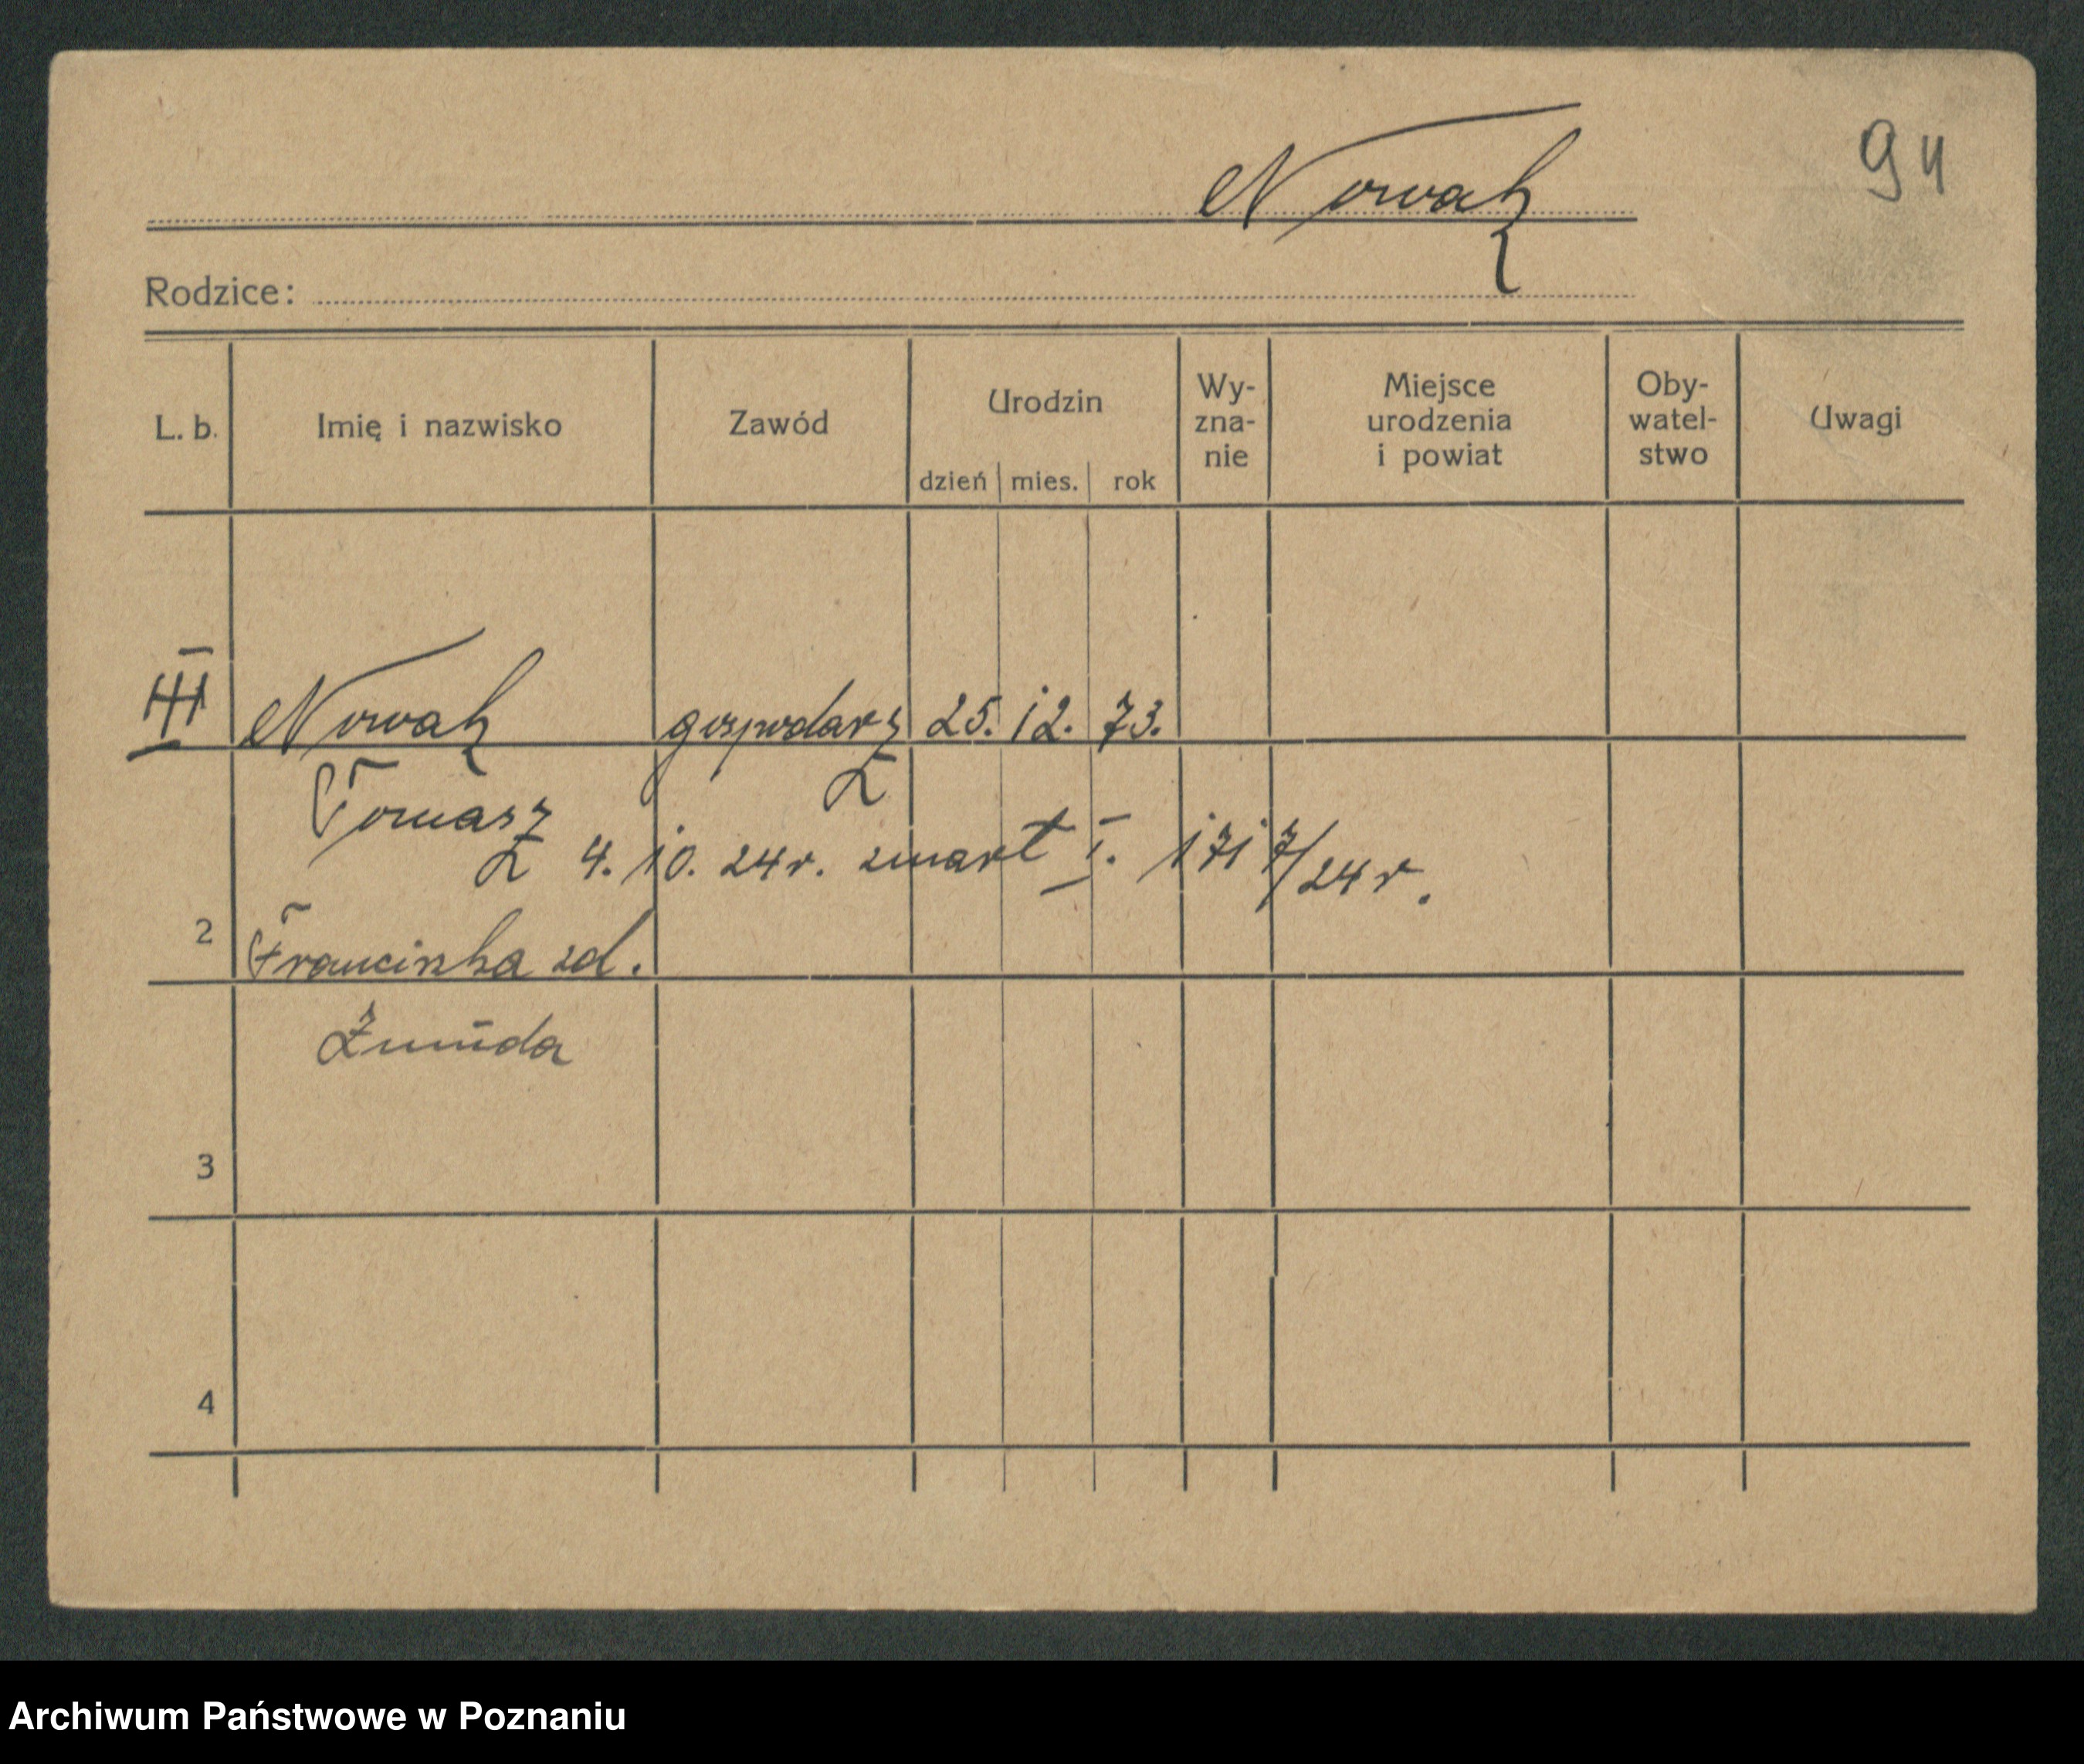 94
Nowak
Rodzice:
L. b. Imię i nazwisko Zawód Urodzin dzień mies. rok Wy-zna-nie Miejsce urodzenia i powiat Oby-watel-stwo Uwagi
III Nowak gospodarz 25. 12. 73.
Tomasz
4. 10. 24 r. zmarł I. 171 7/24 r.
2 Franciszka zd.
Żmuda
3
4
Archiwum Państwowe w Poznaniu